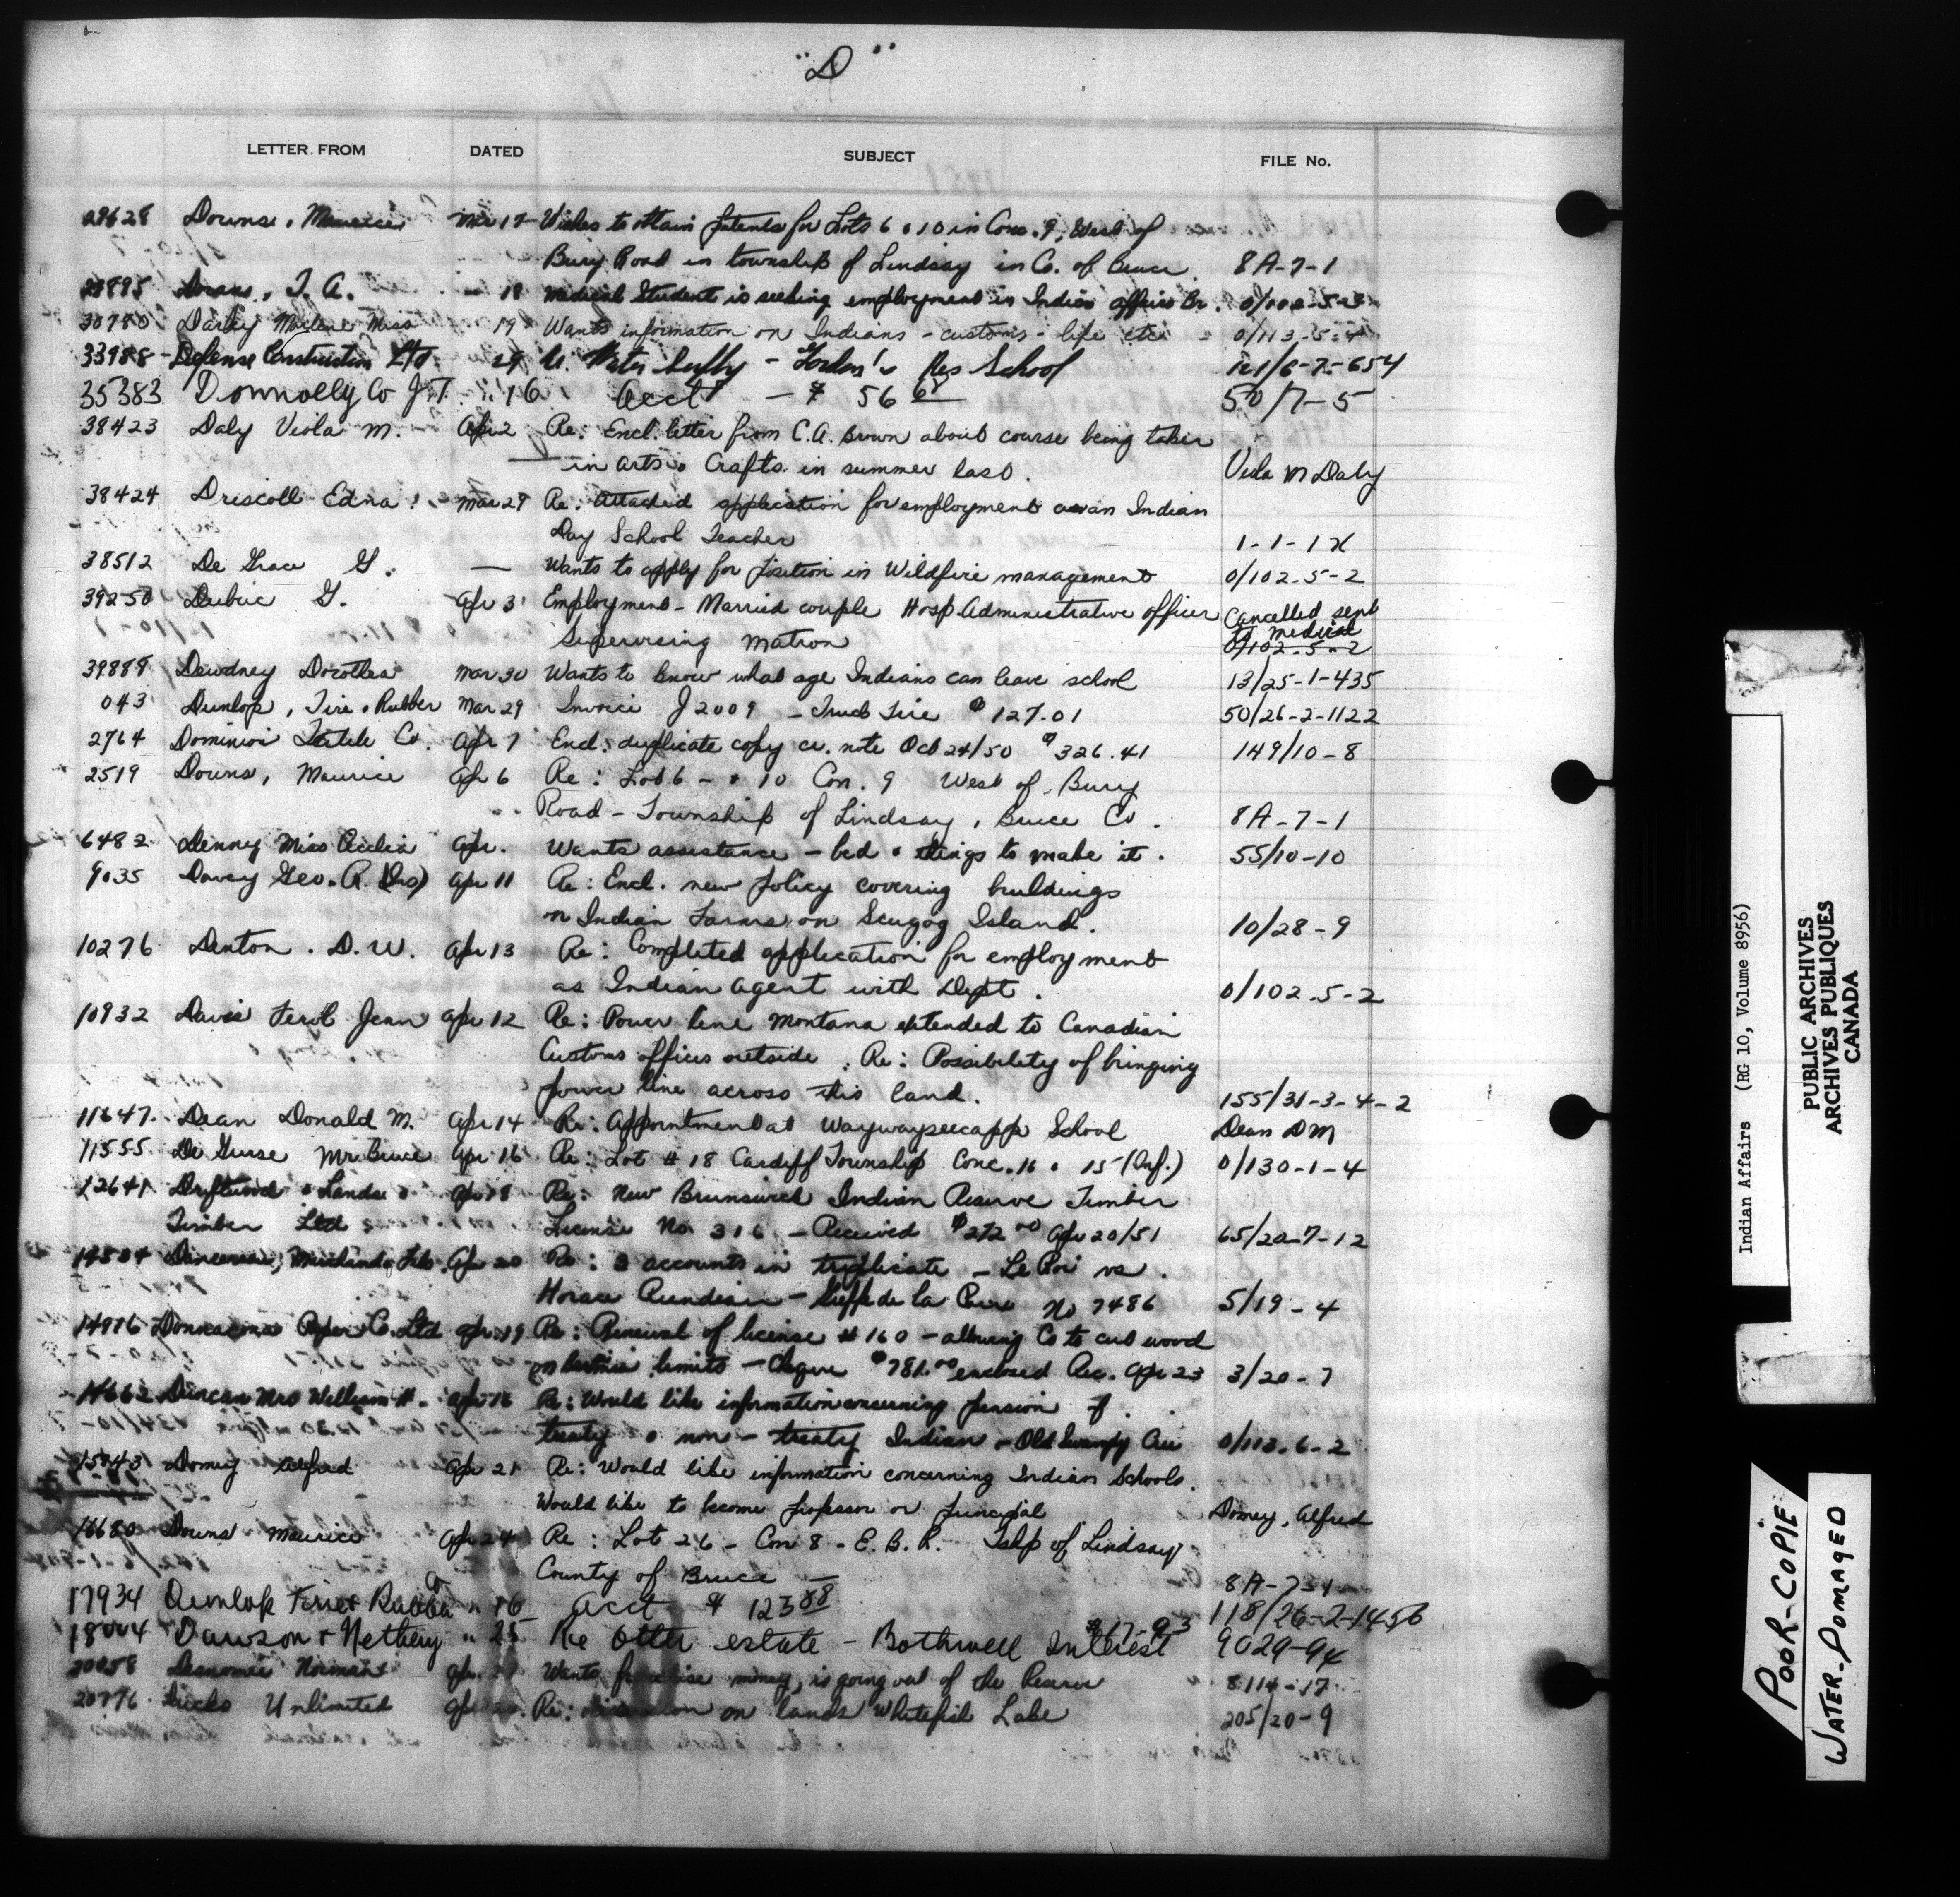 "D"
LETTER FROM DATED SUBJECT FILE No.
29628 Downs, Maurice Mar 17 Wishes to obtain patents for Lots 6 & 10 in Conc. 9, West of
Bury Road in township of Lindsay in Co. of Bruce 8A-7-1
T. A. 18 Medical Student is seeking employment in Indian affairs Br.
30780 Darley Miss 19 Wants information on Indians - customs - life etc 0/113-5-4
33988 Defense Construction Ltd 29 Water Supply - Gordon's Res School
35383 Donnolly Co J.T. " 16 acct - $ 56 68 50/7-5
38423 Daly Viola M. Apr 2 Re: Encl. letter from C.A. Brown about course being taken
in Arts & Crafts in summer Viola M Daly
38424 Driscoll Edna Mar 29 Re: Attached application for employment as an Indian
Day School Teacher 1-1-1X
38512 De Grace G. — Wants to apply for position in Wildfire management 0/102-5-2
39250 G. Apr 3 Employment - Married couple Hosp. Administrative officer Cancelled sent
Supervising matron to medical
0/102-5-2
39888 Dewdney Dorothea Mar 30 Wants to know what age Indians can leave school 13/25-1-435
043 Dunlop, Tire & Rubber Mar 29 Invoice J2009 - Truck Tire $127.01 50/26-2-1122
2764 Dominion Textile Co. Apr 7 Encl. duplicate copy cr. note Oct 24/50 $326.41 149/10-8
2519 Downs, Maurice Apr 6 Re: Lot 6 - & 10 Con. 9 West of Bury
Road - Township of Lindsay, Bruce Co. 8A-7-1
6482 Denny Miss Cecilia Apr. Wants assistance - bed & things to make it. 55/10-10
9035 Davey Geo. R. (Ins) Apr 11 Re: Encl. new policy covering buildings
on Indian Farms on Scugog Island. 10/28-9
10276 Denton. D.W. Apr 13 Re: Completed application for employment
as Indian Agent with Dept. 0/102-5-2
10932 Davis Ferol Jean Apr 12 Re: Power line Montana extended to Canadian
Customs offices outside. Re: Possibility of bringing
power line across this land. 155/31-3-4-2
11647. Dean Donald M. Apr 14 Re: Appointment at Waywayseecappo School Dean DM
11555 De Gurse Mr. Bruce Apr 16 Re: Lot #18 Cardiff Township Conc. 16 & 15 (Inf.) 0/130-1-4
12641 Driftwood & Lands & Apr 18 Re: New Brunswick Indian Reserve Timber
Timber Ltd License No. 316 - Received $272.00 Apr 20/51 65/20-7-12
Apr 20 Re: 3 accounts in triplicate - Le Roi vs.
Horace - Greffe de la Paix No 7486 5/19-4
14916 Donnacona Paper Co. Ltd Apr. 19 Re: Renewal of license #160 - allowing Co to cut wood
on limits - cheque $781.00 enclosed Rec. Apr 23 3/20-7
14662 Duncan Mrs William H. Apr 16 Re: Would like information concerning pension of
treaty & non-treaty Indian - Old Swampy Cree 0/112-6-2
15043 Domey Alfred Apr 21 Re: Would like information concerning Indian Schools.
Would like to become professor or principal Domey, Alfred
16680 Downs Maurice Apr 24 Re: Lot 26 - Con 8 - E.B.R. Tshp of Lindsay
County of Bruce — 8A-7-1
17934 Dunlop Tire & Rubber Co " 16 acct $ 123 88 118/26-2-1456
18004 Dawson & " 25 Re Otter estate - Bothwell Interest $17.93 9029-94
Norman Wants money, is going out of the Reserve
20776 Ducks Unlimited Re: on lands Whitefish Lake 205/20-9
Indian Affairs (RG 10, Volume 8956)
PUBLIC ARCHIVES
ARCHIVES PUBLIQUES
CANADA
POOR-COPIE
WATER-DOMAGED